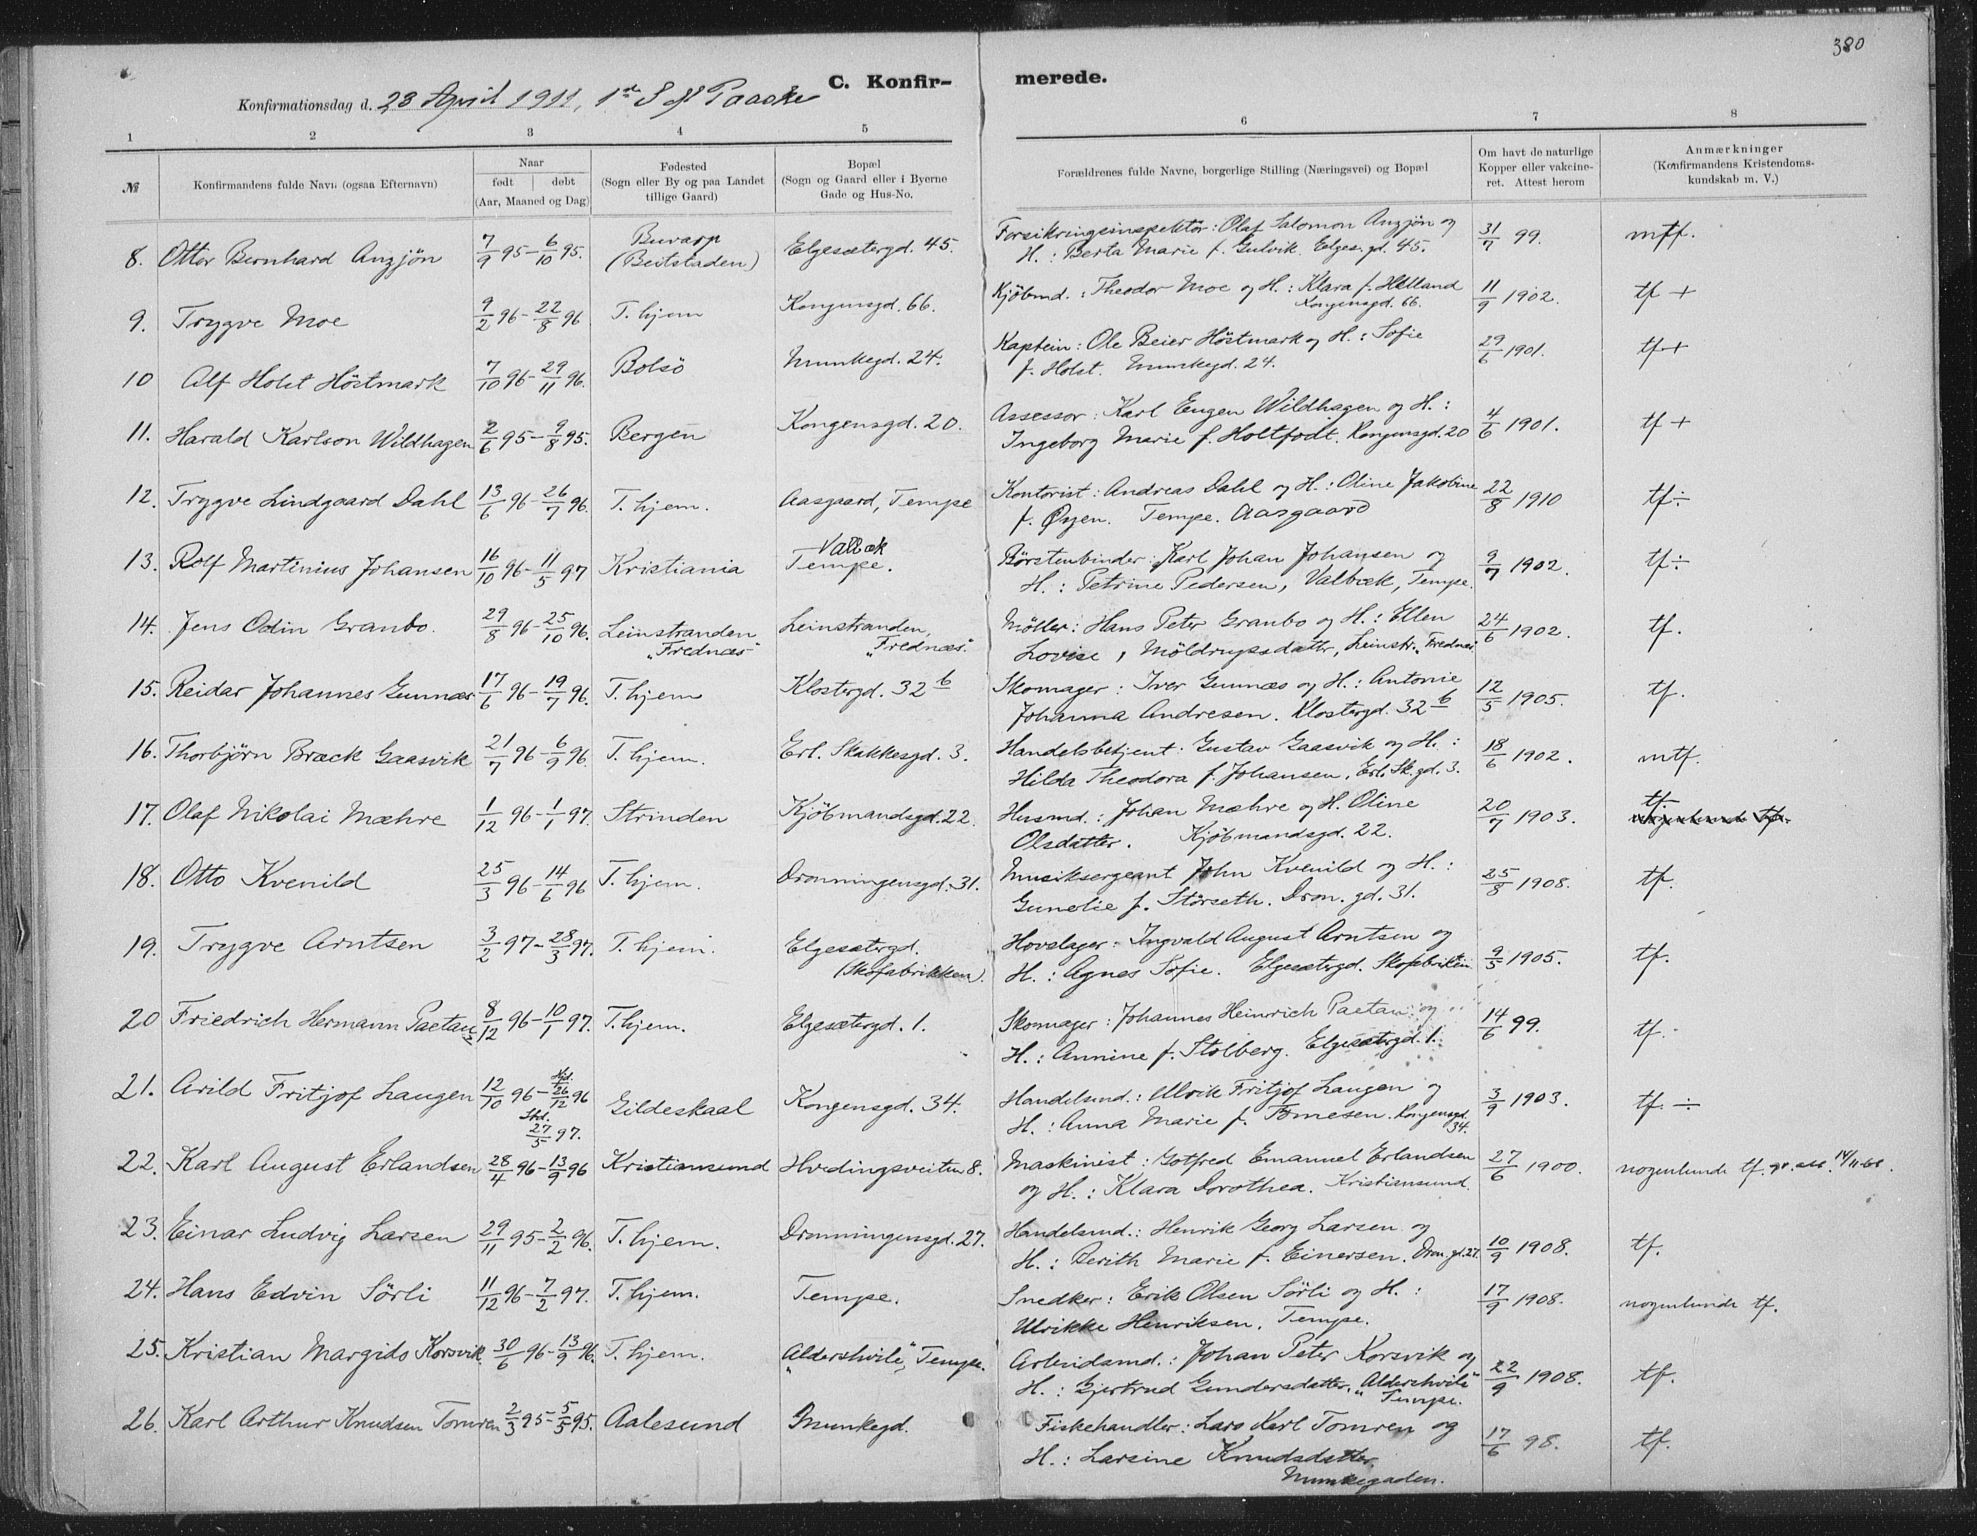 380
C. Konfir- merede.
Konfirmationsdag d. 23 April 1911, 1ste S. eft. Paaske
1 2 3 4 5 6 7 8
№ Konfirmandens fulde Navn (ogsaa Efternavn) Naar født døbt (Aar, Maaned og Dag) Fødested (Sogn eller By og paa Landet tillige Gaard) Bopæl (Sogn og Gaard eller i Byerne Gade og Hus-No. Forældrenes fulde Navne, borgerlige Stilling (Næringsvei) og Bopæl Om havt de naturlige Kopper eller vakcineret. Attest herom Anmærkninger (Konfirmandens Kristendomskundskab m. V.)
8. Ottar Bernhard Anzjön 7/9 95 - 6/10 95. Buvarp (Beitstaden) Elgesætergd. 45. Forsikringsinspektör: Olaf Salomon Anzjön og 31/7 99. mtf.
H.: Berta Marie f. Gulvik. Elges. gd. 45.
9. Trygve Moe 9/2 96 - 22/8 96 T.hjem Kongensgd. 66. Kjöbmd.: Theodor Moe og H.: Klara f. Helland 11/9 1902. tf +
Kongensgd. 66.
10 Alf Holst Höstmark 7/10 96 - 29/11 96. Bolsö Munkegd. 24. Kaptein: Ole Beier Höstmark og H.: Sofie 29/6 1901. tf +
f. Holst. Munkegd. 24.
11. Harald Karlson Wildhagen 2/6 95 - 9/8 95. Bergen Kongensgd. 20. Assessor: Karl Eugen Wildhagen og H.: 4/6 1901. tf +
Ingeborg Marie f. Holtfodt. Kongensgd. 20
12. Trygve Lindgaard Dahl 13/6 96 - 26/7 96. T.hjem. Aasgaard, Tempe Kontorist: Andreas Dahl og H.: Oline Jakobine 22/8 1910 tf ÷
f. Øyen. Tempe. Aasgaard
13. Rolf Martinius Johansen 16/10 96 - 11/5 97 Kristiania Valbæk Tempe. Børstenbinder: Karl Johan Johansen og 9/7 1902. tf ÷
H.: Petrine Pedersen, Valbæk, Tempe.
14. Jens Odin Granbo. 29/8 96 - 25/10 96. Leinstranden "Frednæs" Leinstranden, "Frednæs." Möller: Hans Peter Granbo og H.: Ellen 24/6 1902. tf.
Lovise, Möldrupsdatter, Leinstr. Frednæs
15. Reidar Johannes Gumnæs 17/6 96 - 19/7 96. T.hjem Klostergd. 32 b Skomager: Iver Gumnæs og H.: Antonie 12/5 1905. tf.
Johanna Andresen. Klostergd. 32 b
16. Thorbjörn Bræck Gaasvik 21/7 96 - 6/9 96. T.hjem. Erl. Skakkesgd. 3. Handelsbetjent: Gustav Gaasvik og H.: 18/6 1902. mtf.
Hilda Theodora f. Johansen, Erl. Sk. gd. 3.
17. Olaf Nikolai Mæhre 1/12 96 - 1/1 97. Strinden Kjöbmandsgd. 22. Husmd.: Johan Mæhre og H. Oline 20/7 1903. tf
Olsdatter. Kjöbmandsgd. 22.
18. Otto Kvenild 25/3 96 - 14/6 96 T.hjem. Dronningensgd. 31. Musiksergeant John Kvenild og H.: 25/8 1908. tf.
Gunelie f. Störseth. Dron. gd. 31.
19. Trygve Arntsen 3/2 97 - 28/3 97. T.hjem. Elgesætergd. (Skofabrikken). Hovslager: Ingvald August Arntsen og 9/5 1905. tf.
H.: Agnes Sofie. Elgesætergd. Skofabrikken
20 Friedrich Hermann Paetau 8/12 96 - 10/1 97. T.hjem. Elgesætergd. 1. Skomager: Johannes Heinrich Paetau og 14/6 99. tf.
H.: Annine f. Stolberg. Elgesætergd. 1.
21. Arild Fritjof Laugen 12/10 96 - Hjd. 26/12 96 Gildeskaal Kongensgd. 34. Handelsmd.: Ulrik Fritjof Laugen og 3/9 1903. tf. ÷
27/5 97. H.: Anna Marie f. Tömesen. Kongensgd. 34.
22. Karl August Erlandsen 28/4 96 - 13/9 96 Kristiansund Hvedingsveiten 8. Maskinist: Gotfred Emanuel Erlandsen 27/6 1900. nogenlunde tf.
og H.: Klara Dorothea. Kristiansund.
23. Einar Ludvig Larsen 29/11 95 - 2/2 96. T.hjem. Dronningensgd. 27. Handelsmd.: Henrik Georg Larsen og 10/9 1908. tf.
H.: Berith Marie f. Einersen. Dron. gd. 27.
24. Hans Edvin Sörli 11/12 96 - 7/2 97. T.hjem. Tempe. Snedker: Erik Olsen Sörli og H.: 17/9 1908. nogenlunde tf.
Ulrikke Henriksen. Tempe.
25. Kristian Margido Korsvik 30/6 96 - 13/9 96. T.hjem. "Aldershvile", Tempe. Arbeidsmd.: Johan Peter Korsvik og 22/9 1908. tf.
H.: Gjertrud Gundersdatter. "Aldershvile" Tempe.
26. Karl Arthur Knudsen Tomren 2/3 95 - 5/5 95. Aalesund Munkegd. Fiskehandler: Lars Karl Tomren og 17/6 98. tf.
H.: Larsine Knudsdatter.
Munkegaden.